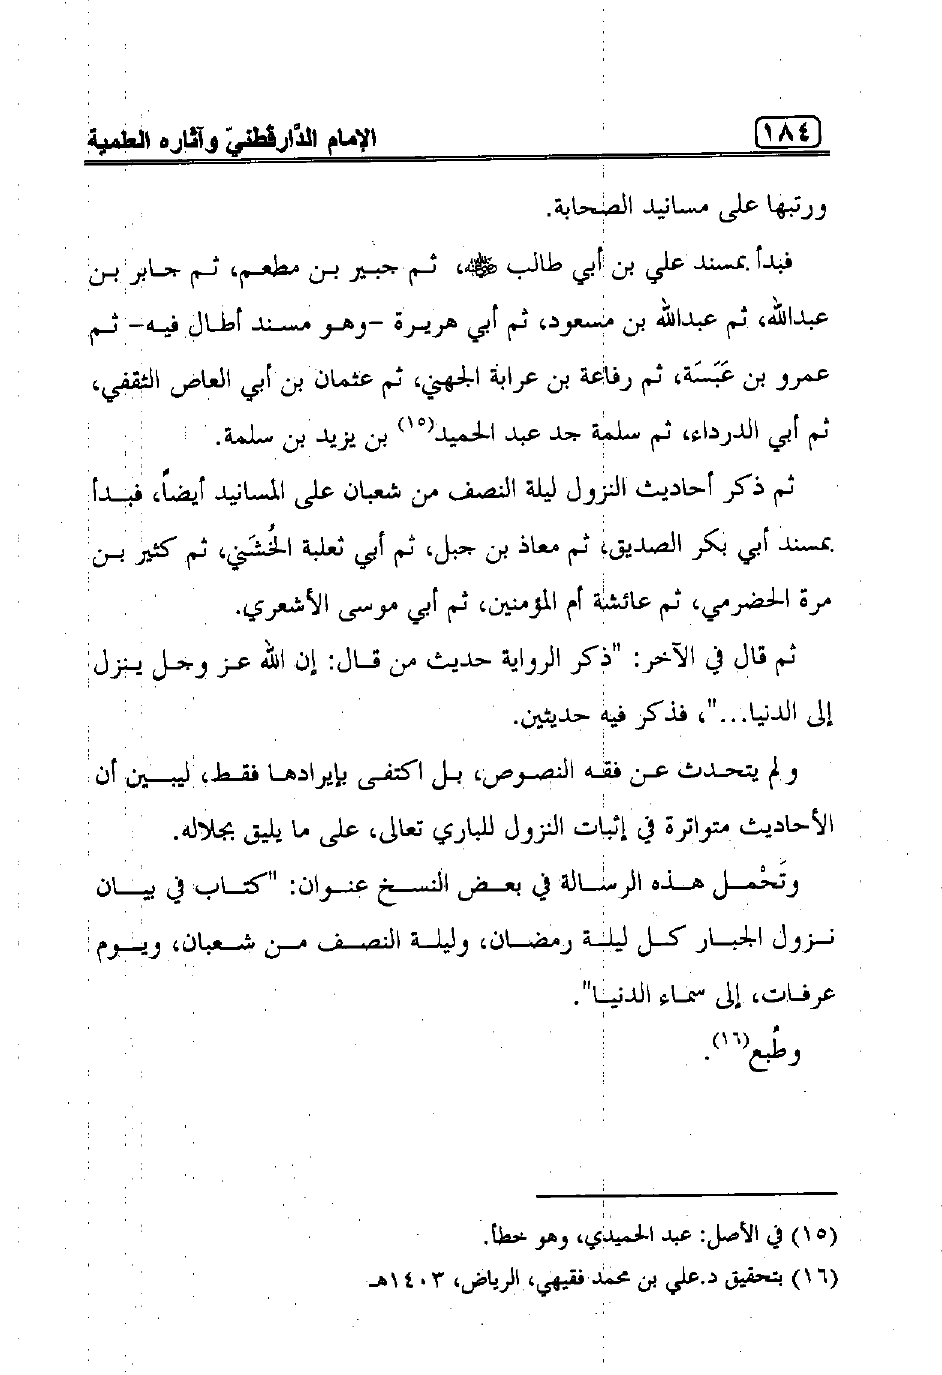 ١٨٤ الإمام الدَّارقُطنيّ وآثاره العلمية
ورتبها على مسانيد الصحابة.
فبدأ بمسند علي بن أبي طالب ﷺ، ثم جبير بن مطعم، ثم جابر بن
عبدالله، ثم عبدالله بن مسعود، ثم أبي هريرة -وهو مسند أطال فيه- ثم
عمرو بن عَبَسَة، ثم رفاعة بن عرابة الجهني، ثم عثمان بن أبي العاص الثقفي،
ثم أبي الدرداء، ثم سلمة جد عبد الحميد(١٥) بن يزيد بن سلمة.
ثم ذكر أحاديث النزول ليلة النصف من شعبان على المسانيد أيضاً، فبدأ
بمسند أبي بكر الصديق، ثم معاذ بن جبل، ثم أبي ثعلبة الخُشَني، ثم كثير بن
مرة الحضرمي، ثم عائشة أم المؤمنين، ثم أبي موسى الأشعري.
ثم قال في الآخر: "ذكر الرواية حديث من قال: إن الله عز وجل ينزل
إلى الدنيا..."، فذكر فيه حديثين.
ولم يتحدث عن فقه النصوص، بل اكتفى بإيرادها فقط، ليبين أن
الأحاديث متواترة في إثبات النزول للباري تعالى، على ما يليق بجلاله.
وتَحْمل هذه الرسالة في بعض النسخ عنوان: "كتاب في بيان
نزول الجبار كل ليلة رمضان، وليلة النصف من شعبان، ويوم
عرفات، إلى سماء الدنيا".
وطُبع(١٦).
(١٥) في الأصل: عبد الحميدي، وهو خطأ.
(١٦) بتحقيق د.علي بن محمد فقيهي، الرياض، ١٤٠٣هـ